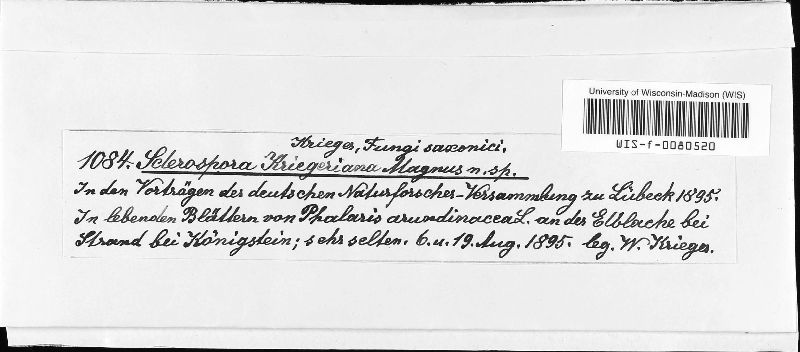 University of Wisconsin-Madison (WIS)
WIS-f-0080520
Krieger, Fungi saxonici.
1084. Sclerospora Kriegeriana Magnus n. sp.
In den Vorträgen der deutschen Naturforscher-Versammlung zu Lübeck 1895.
In lebenden Blättern von Phalaris arundinacea L. an der Elblache bei
Strand bei Königstein; sehr selten. 6. u. 19. Aug. 1895. leg. W. Krieger.